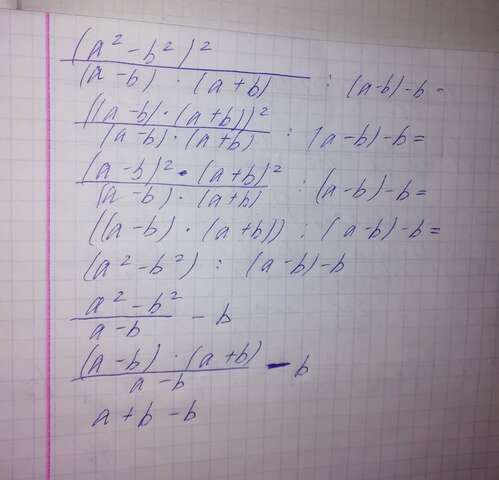 (a² - b²)² / (a - b) · (a + b) : (a - b) - b =
((a - b) · (a + b))² / (a - b) · (a + b) : (a - b) - b =
(a - b)² · (a + b)² / (a - b) · (a + b) : (a - b) - b =
((a - b) · (a + b)) : (a - b) - b =
(a² - b²) : (a - b) - b
a² - b² / a - b - b
(a - b) · (a + b) / a - b - b
a + b - b